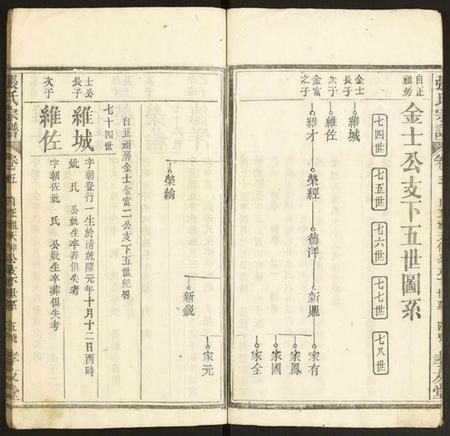 自正
祖房
金士公支下五世圖系
七四世
七五世
七六世
七七世
七八世
金士
長子
維城
次子
維佐
金富
之子
維才
榮經
德洋
新
家有
家鳳
家國
家全
家元
新銳
榮綸
自正祖房金士金富二公支下五世紀畧
七十四世
士公
長子
維城
字朝登行一生於清乾隆元年十月十二日酉時
妣氏 公妣生卒葬俱失考
次子
維佐
字朝佐妣氏 公妣生卒葬俱失考
張氏宗譜
卷五
自正祖房
公支下世系
五
孝友堂
張氏宗譜
卷五
孝友堂